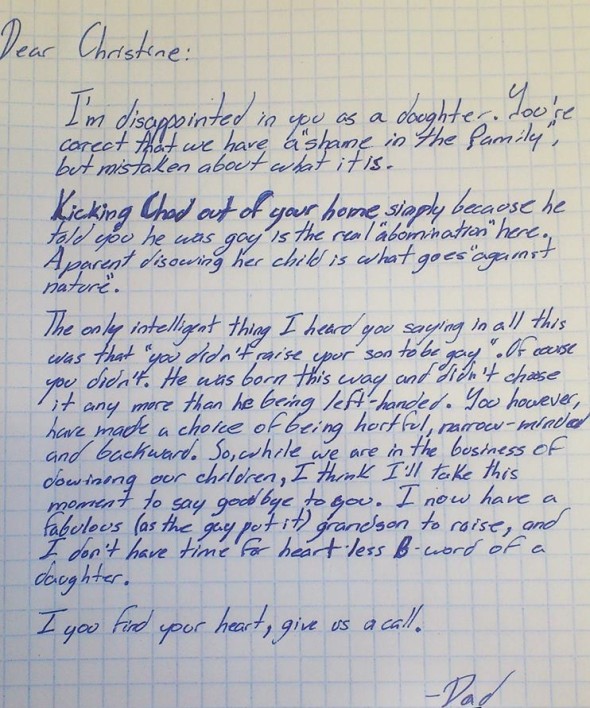 Dear Christine:
I'm disappointed in you as a daughter. You're
corect that we have a "shame in the family",
but mistaken about what it is.
Kicking Chad out of your home simply because he
told you he was gay is the real "abomination" here.
A parent disowing her child is what goes "against
nature".
The only intelligent thing I heard you saying in all this
was that "you didn't raise your son to be gay". Of couse
you didn't. He was born this way and didn't choose
it any more than he being left-handed. You however,
have made a choice of being hurtful, narrow-minded
and backward. So, while we are in the business of
dowining our children, I think I'll take this
moment to say goodbye to you. I now have a
fabulous (as the gay put it) grandson to raise, and
I don't have time for heart-less B-word of a
daughter.
I you find your heart, give us a call.
-Dad